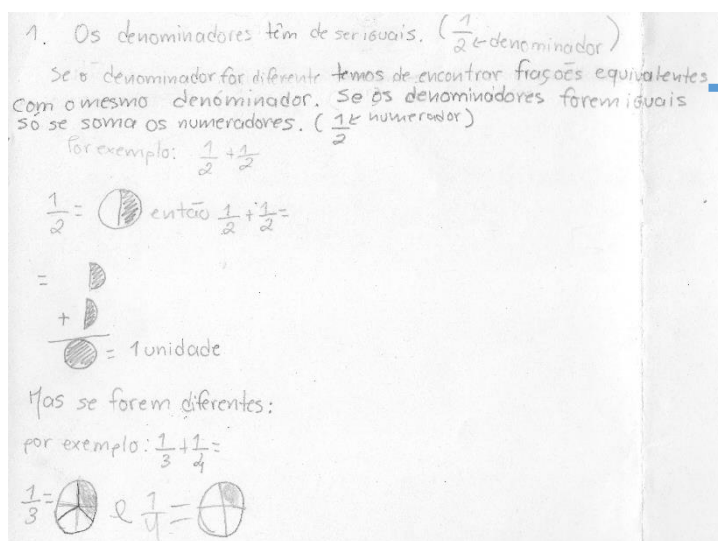 1. Os denominadores têm de ser iguais. (1/2 ← denominador)
Se o denominador for diferente temos de encontrar frações equivalentes
com o mesmo denominador. Se os denominadores forem iguais
só se soma os numeradores. (1/2 ← numerador)
Por exemplo: 1/2 + 1/2
1/2 = então 1/2 + 1/2 =
=
+
= 1 unidade
Mas se forem diferentes:
por exemplo: 1/3 + 1/4 =
1/3 = e 1/4 =